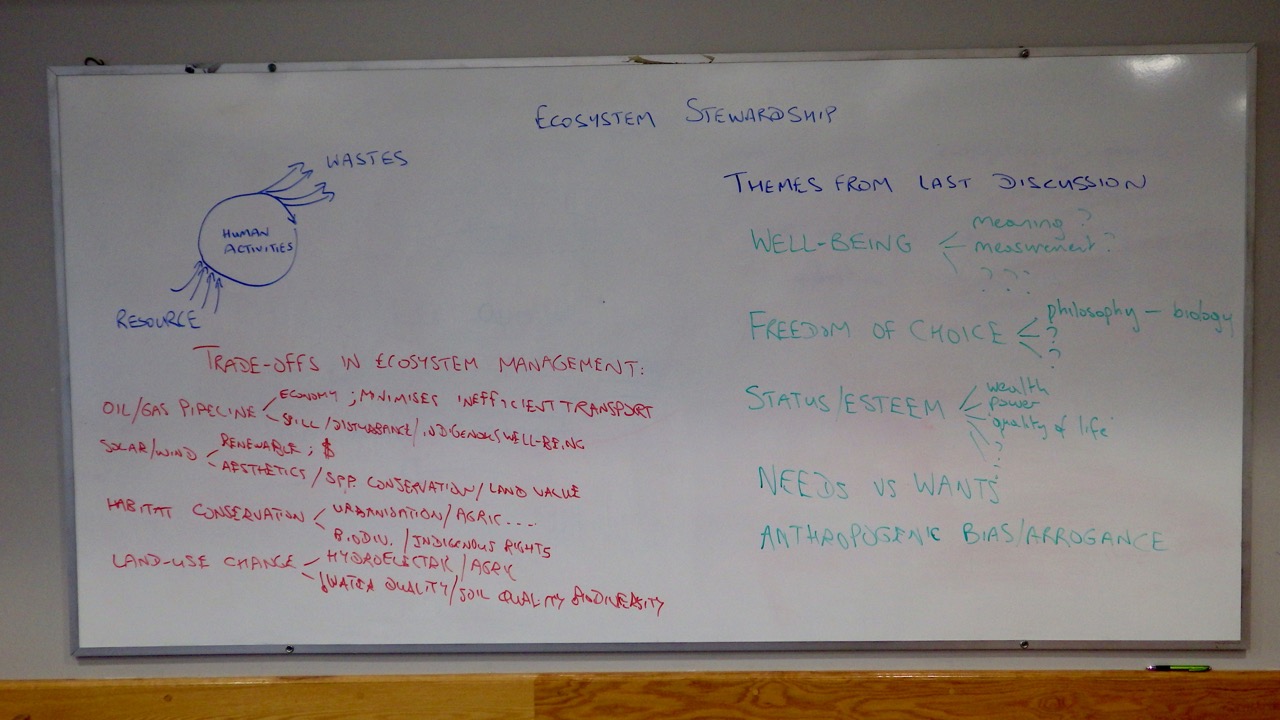 ECOSYSTEM STEWARDSHIP
WASTES
HUMAN
ACTIVITIES
RESOURCE
TRADE-OFFS IN ECOSYSTEM MANAGEMENT:
OIL/GAS PIPELINE
ECONOMY ; MINIMISES INEFFICIENT TRANSPORT
SPILL/DISTURBANCE/INDIGENOUS WELL-BEING
SOLAR/WIND
RENEWABLE ; $
AESTHETICS/SPP. CONSERVATION/LAND VALUE
HABITAT CONSERVATION
URBANISATION/AGRIC....
BIODIV./INDIGENOUS RIGHTS
LAND-USE CHANGE
HYDROELECTRIC/AGRIC
WATER QUALITY/SOIL QUALITY BIODIVERSITY
THEMES FROM LAST DISCUSSION
WELL-BEING
meaning ?
measurement ?
? ? ?
FREEDOM OF CHOICE
philosophy — biology
?
?
STATUS/ESTEEM
wealth
power
quality of life
?
NEEDS VS WANTS
ANTHROPOGENIC BIAS/ARROGANCE